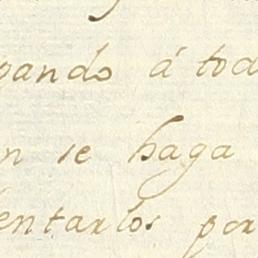 gando á tod
n se haga
entarlos por